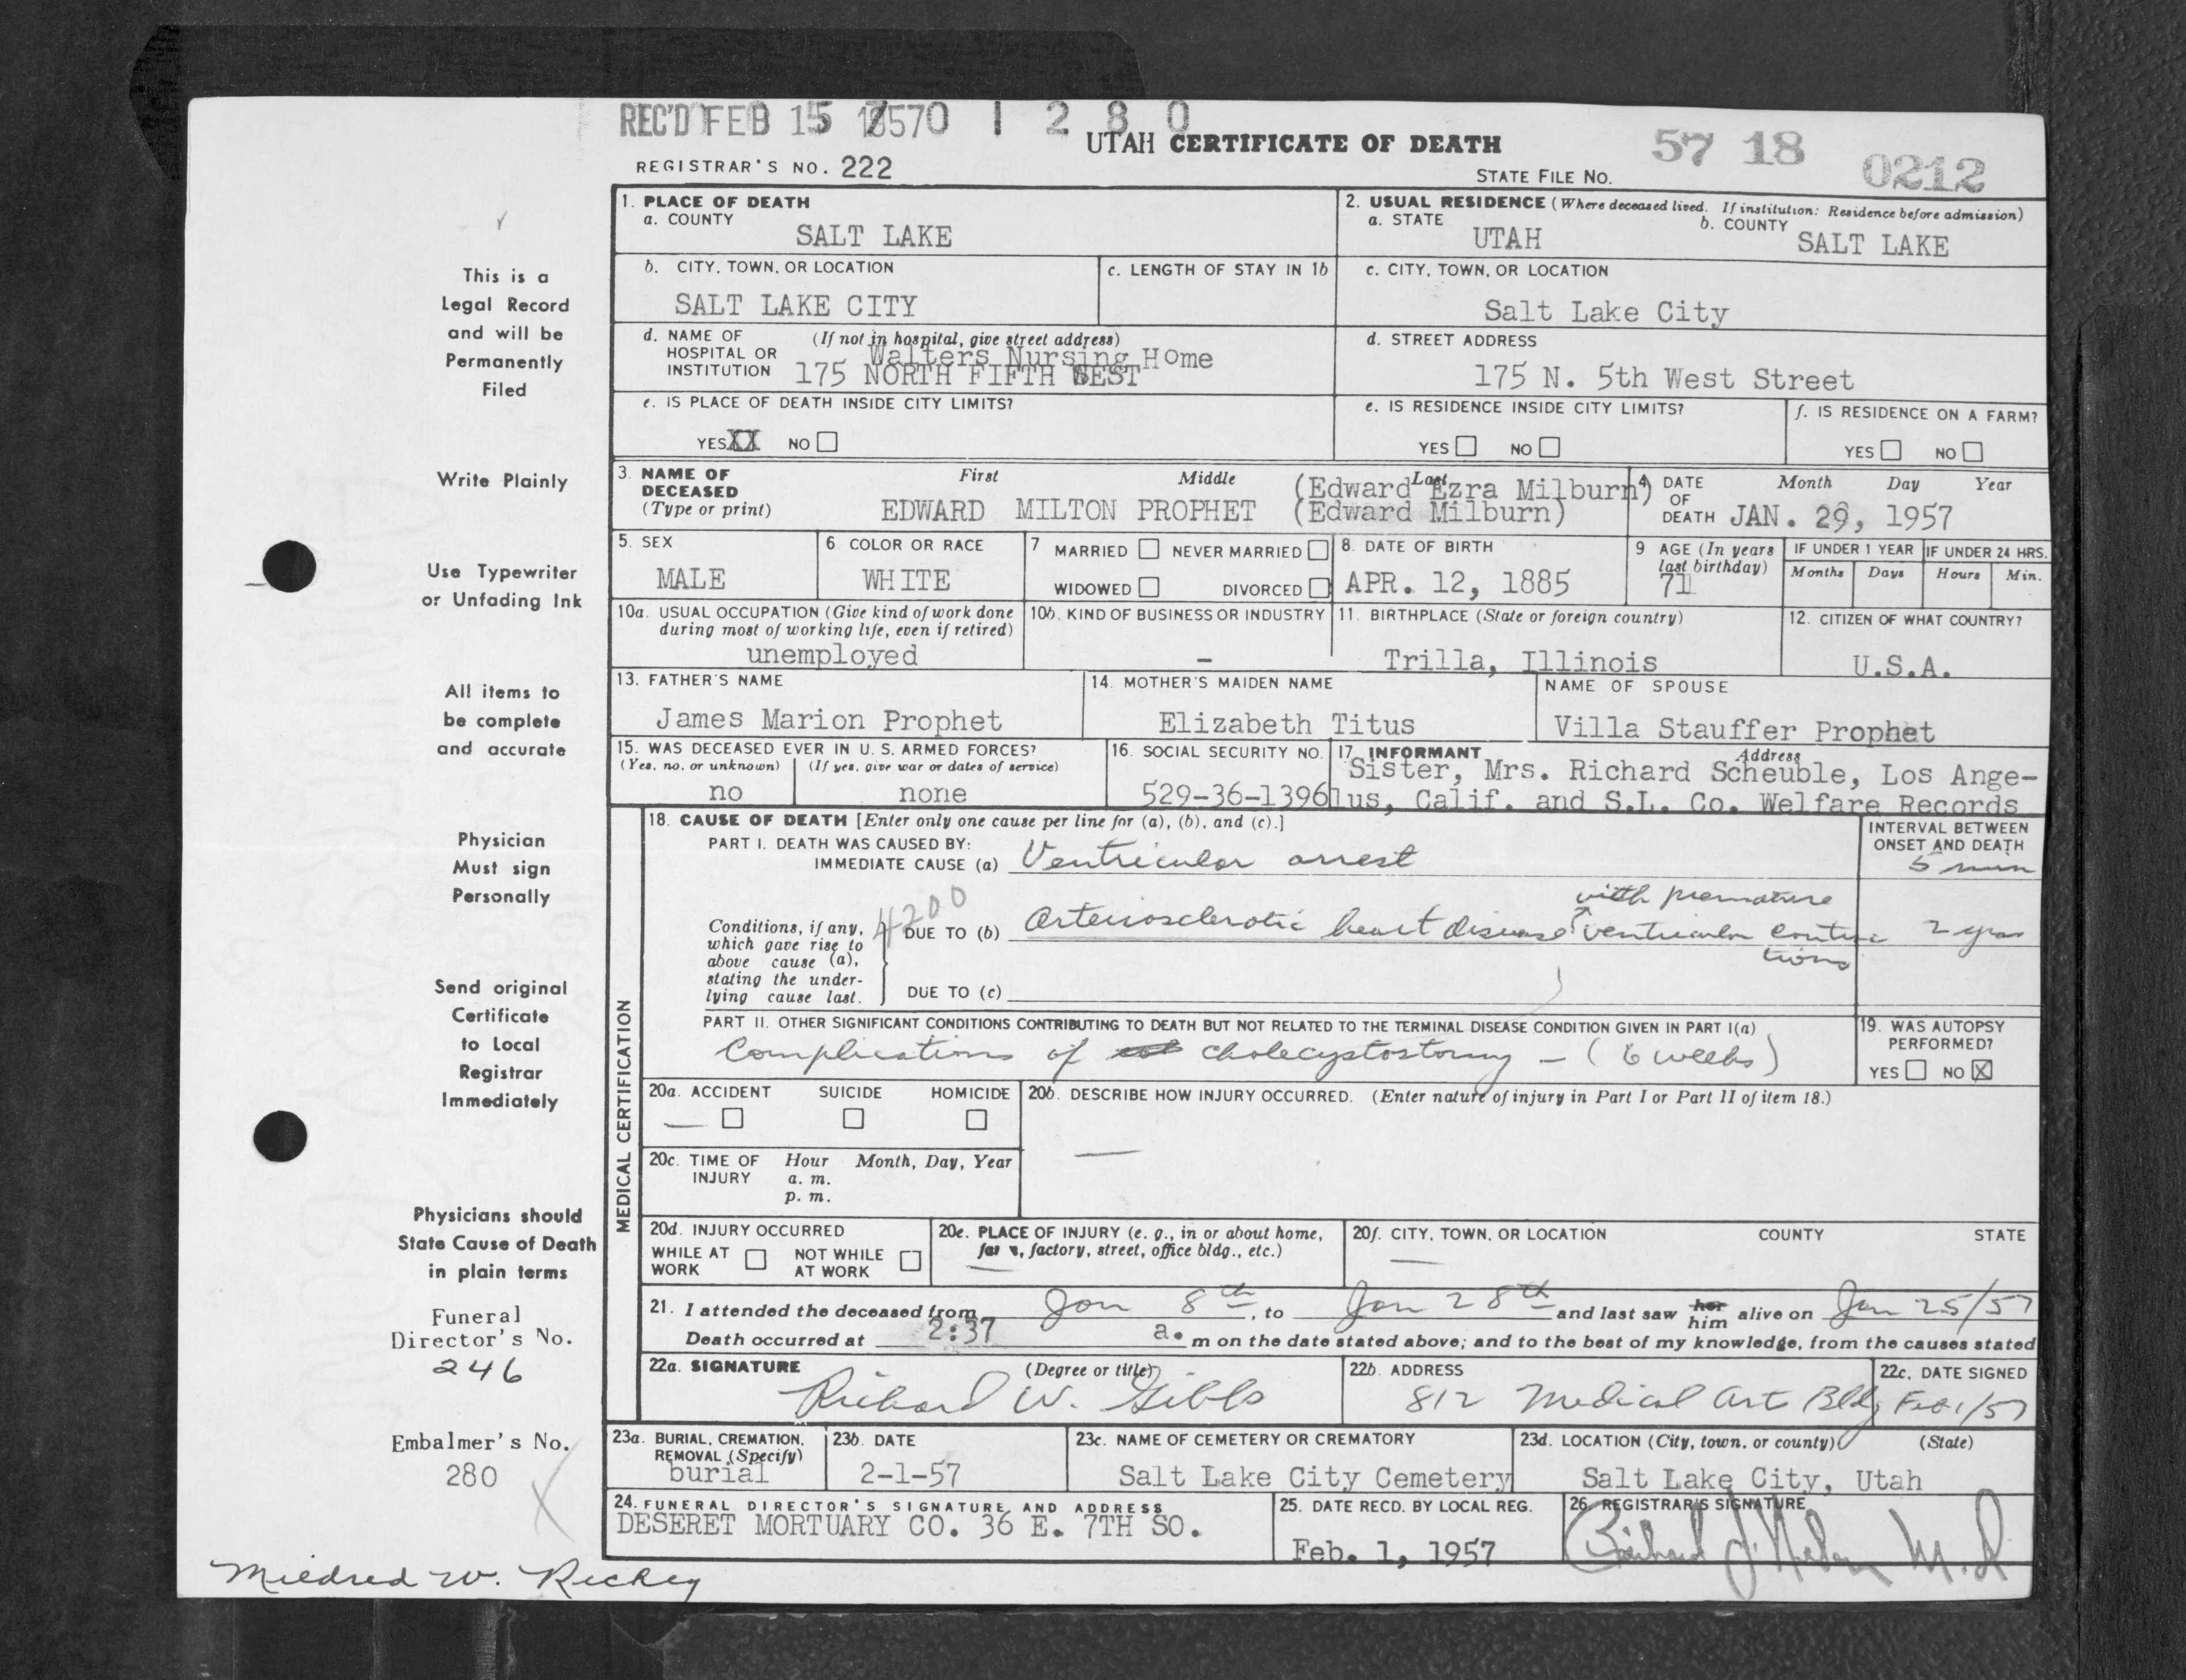 REC'D FEB 15 570 1 2 8 0
UTAH CERTIFICATE OF DEATH
57 18 0212
REGISTRAR'S NO. 222
STATE FILE NO.
1. PLACE OF DEATH
a. COUNTY
SALT LAKE
2. USUAL RESIDENCE (Where deceased lived. If institution: Residence before admission)
a. STATE
UTAH
b. COUNTY
SALT LAKE
b. CITY, TOWN, OR LOCATION
SALT LAKE CITY
c. LENGTH OF STAY IN 1b
c. CITY, TOWN, OR LOCATION
Salt Lake City
d. NAME OF HOSPITAL OR INSTITUTION
(If not in hospital, give street address)
Walters Nursing Home
175 NORTH FIFTH WEST
d. STREET ADDRESS
175 N. 5th West Street
e. IS PLACE OF DEATH INSIDE CITY LIMITS?
YES XX NO
e. IS RESIDENCE INSIDE CITY LIMITS?
YES NO
f. IS RESIDENCE ON A FARM?
YES NO
3. NAME OF DECEASED
(Type or print)
First Middle Last
(Edward Ezra Milburn)
EDWARD MILTON PROPHET (Edward Milburn)
4. DATE OF DEATH
Month Day Year
JAN. 29, 1957
5. SEX
MALE
6 COLOR OR RACE
WHITE
7 MARRIED NEVER MARRIED
WIDOWED DIVORCED
8. DATE OF BIRTH
APR. 12, 1885
9 AGE (In years last birthday)
71
IF UNDER 1 YEAR
Months Days
IF UNDER 24 HRS.
Hours Min.
10a. USUAL OCCUPATION (Give kind of work done during most of working life, even if retired)
unemployed
10b. KIND OF BUSINESS OR INDUSTRY
-
11. BIRTHPLACE (State or foreign country)
Trilla, Illinois
12. CITIZEN OF WHAT COUNTRY?
U.S.A.
13. FATHER'S NAME
James Marion Prophet
14. MOTHER'S MAIDEN NAME
Elizabeth Titus
NAME OF SPOUSE
Villa Stauffer Prophet
15. WAS DECEASED EVER IN U. S. ARMED FORCES?
(Yes, no, or unknown) (If yes, give war or dates of service)
no none
16. SOCIAL SECURITY NO.
529-36-1396
17. INFORMANT Address
Sister, Mrs. Richard Scheuble, Los Ange-
lus, Calif. and S.L. Co. Welfare Records
MEDICAL CERTIFICATION
18. CAUSE OF DEATH [Enter only one cause per line for (a), (b), and (c).]
INTERVAL BETWEEN ONSET AND DEATH
PART I. DEATH WAS CAUSED BY:
IMMEDIATE CAUSE (a) Ventricular arrest 5 min
4200
with premature
Conditions, if any, which gave rise to above cause (a), stating the underlying cause last.
DUE TO (b) Arteriosclerotic heart disease ventricular contrac 2 yrs
tions
DUE TO (c)
PART II. OTHER SIGNIFICANT CONDITIONS CONTRIBUTING TO DEATH BUT NOT RELATED TO THE TERMINAL DISEASE CONDITION GIVEN IN PART I(a)
Complications of cholecystostomy - (6 weeks)
19. WAS AUTOPSY PERFORMED?
YES NO X
20a. ACCIDENT SUICIDE HOMICIDE
20b. DESCRIBE HOW INJURY OCCURRED. (Enter nature of injury in Part I or Part II of item 18.)
20c. TIME OF INJURY
Hour Month, Day, Year
a. m.
p. m.
20d. INJURY OCCURRED
WHILE AT WORK NOT WHILE AT WORK
20e. PLACE OF INJURY (e. g., in or about home, farm, factory, street, office bldg., etc.)
20f. CITY, TOWN, OR LOCATION COUNTY STATE
21. I attended the deceased from Jan 8th, to Jan 28th and last saw her him alive on Jan 25/57
Death occurred at 2:37 a. m on the date stated above; and to the best of my knowledge, from the causes stated
22a. SIGNATURE (Degree or title)
Richard W. Gibbs
22b. ADDRESS
812 Medical Art Bldg
22c. DATE SIGNED
Feb 1/57
23a. BURIAL, CREMATION, REMOVAL (Specify)
burial
23b. DATE
2-1-57
23c. NAME OF CEMETERY OR CREMATORY
Salt Lake City Cemetery
23d. LOCATION (City, town, or county) (State)
Salt Lake City, Utah
24. FUNERAL DIRECTOR'S SIGNATURE AND ADDRESS
DESERET MORTUARY CO. 36 E. 7TH SO.
25. DATE RECD. BY LOCAL REG.
Feb. 1, 1957
26. REGISTRAR'S SIGNATURE
M.D
This is a
Legal Record
and will be
Permanently
Filed
Write Plainly
Use Typewriter
or Unfading Ink
All items to
be complete
and accurate
Physician
Must sign
Personally
Send original
Certificate
to Local
Registrar
Immediately
Physicians should
State Cause of Death
in plain terms
Funeral
Director's No.
246
Embalmer's No.
280
Mildred W. Richey